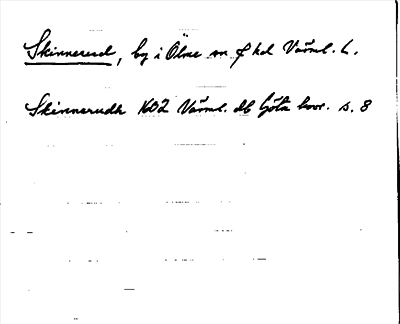 Skinnerud, by i Ölme sn o hd Värml. L.
Skinnerudh 1602 Värml. db Göta hovr. s. 8